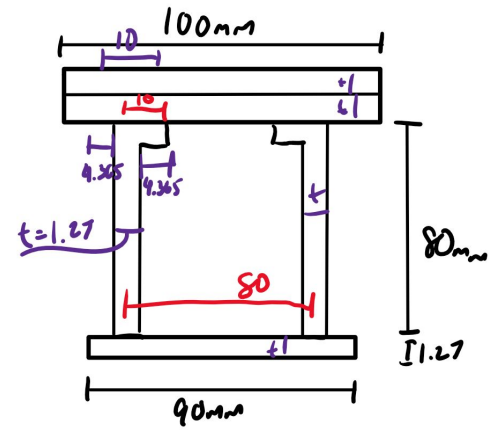 100mm
10
t
10
t
4.365
4.365
t
t=1.27
80mm
80
t
1.27
90mm